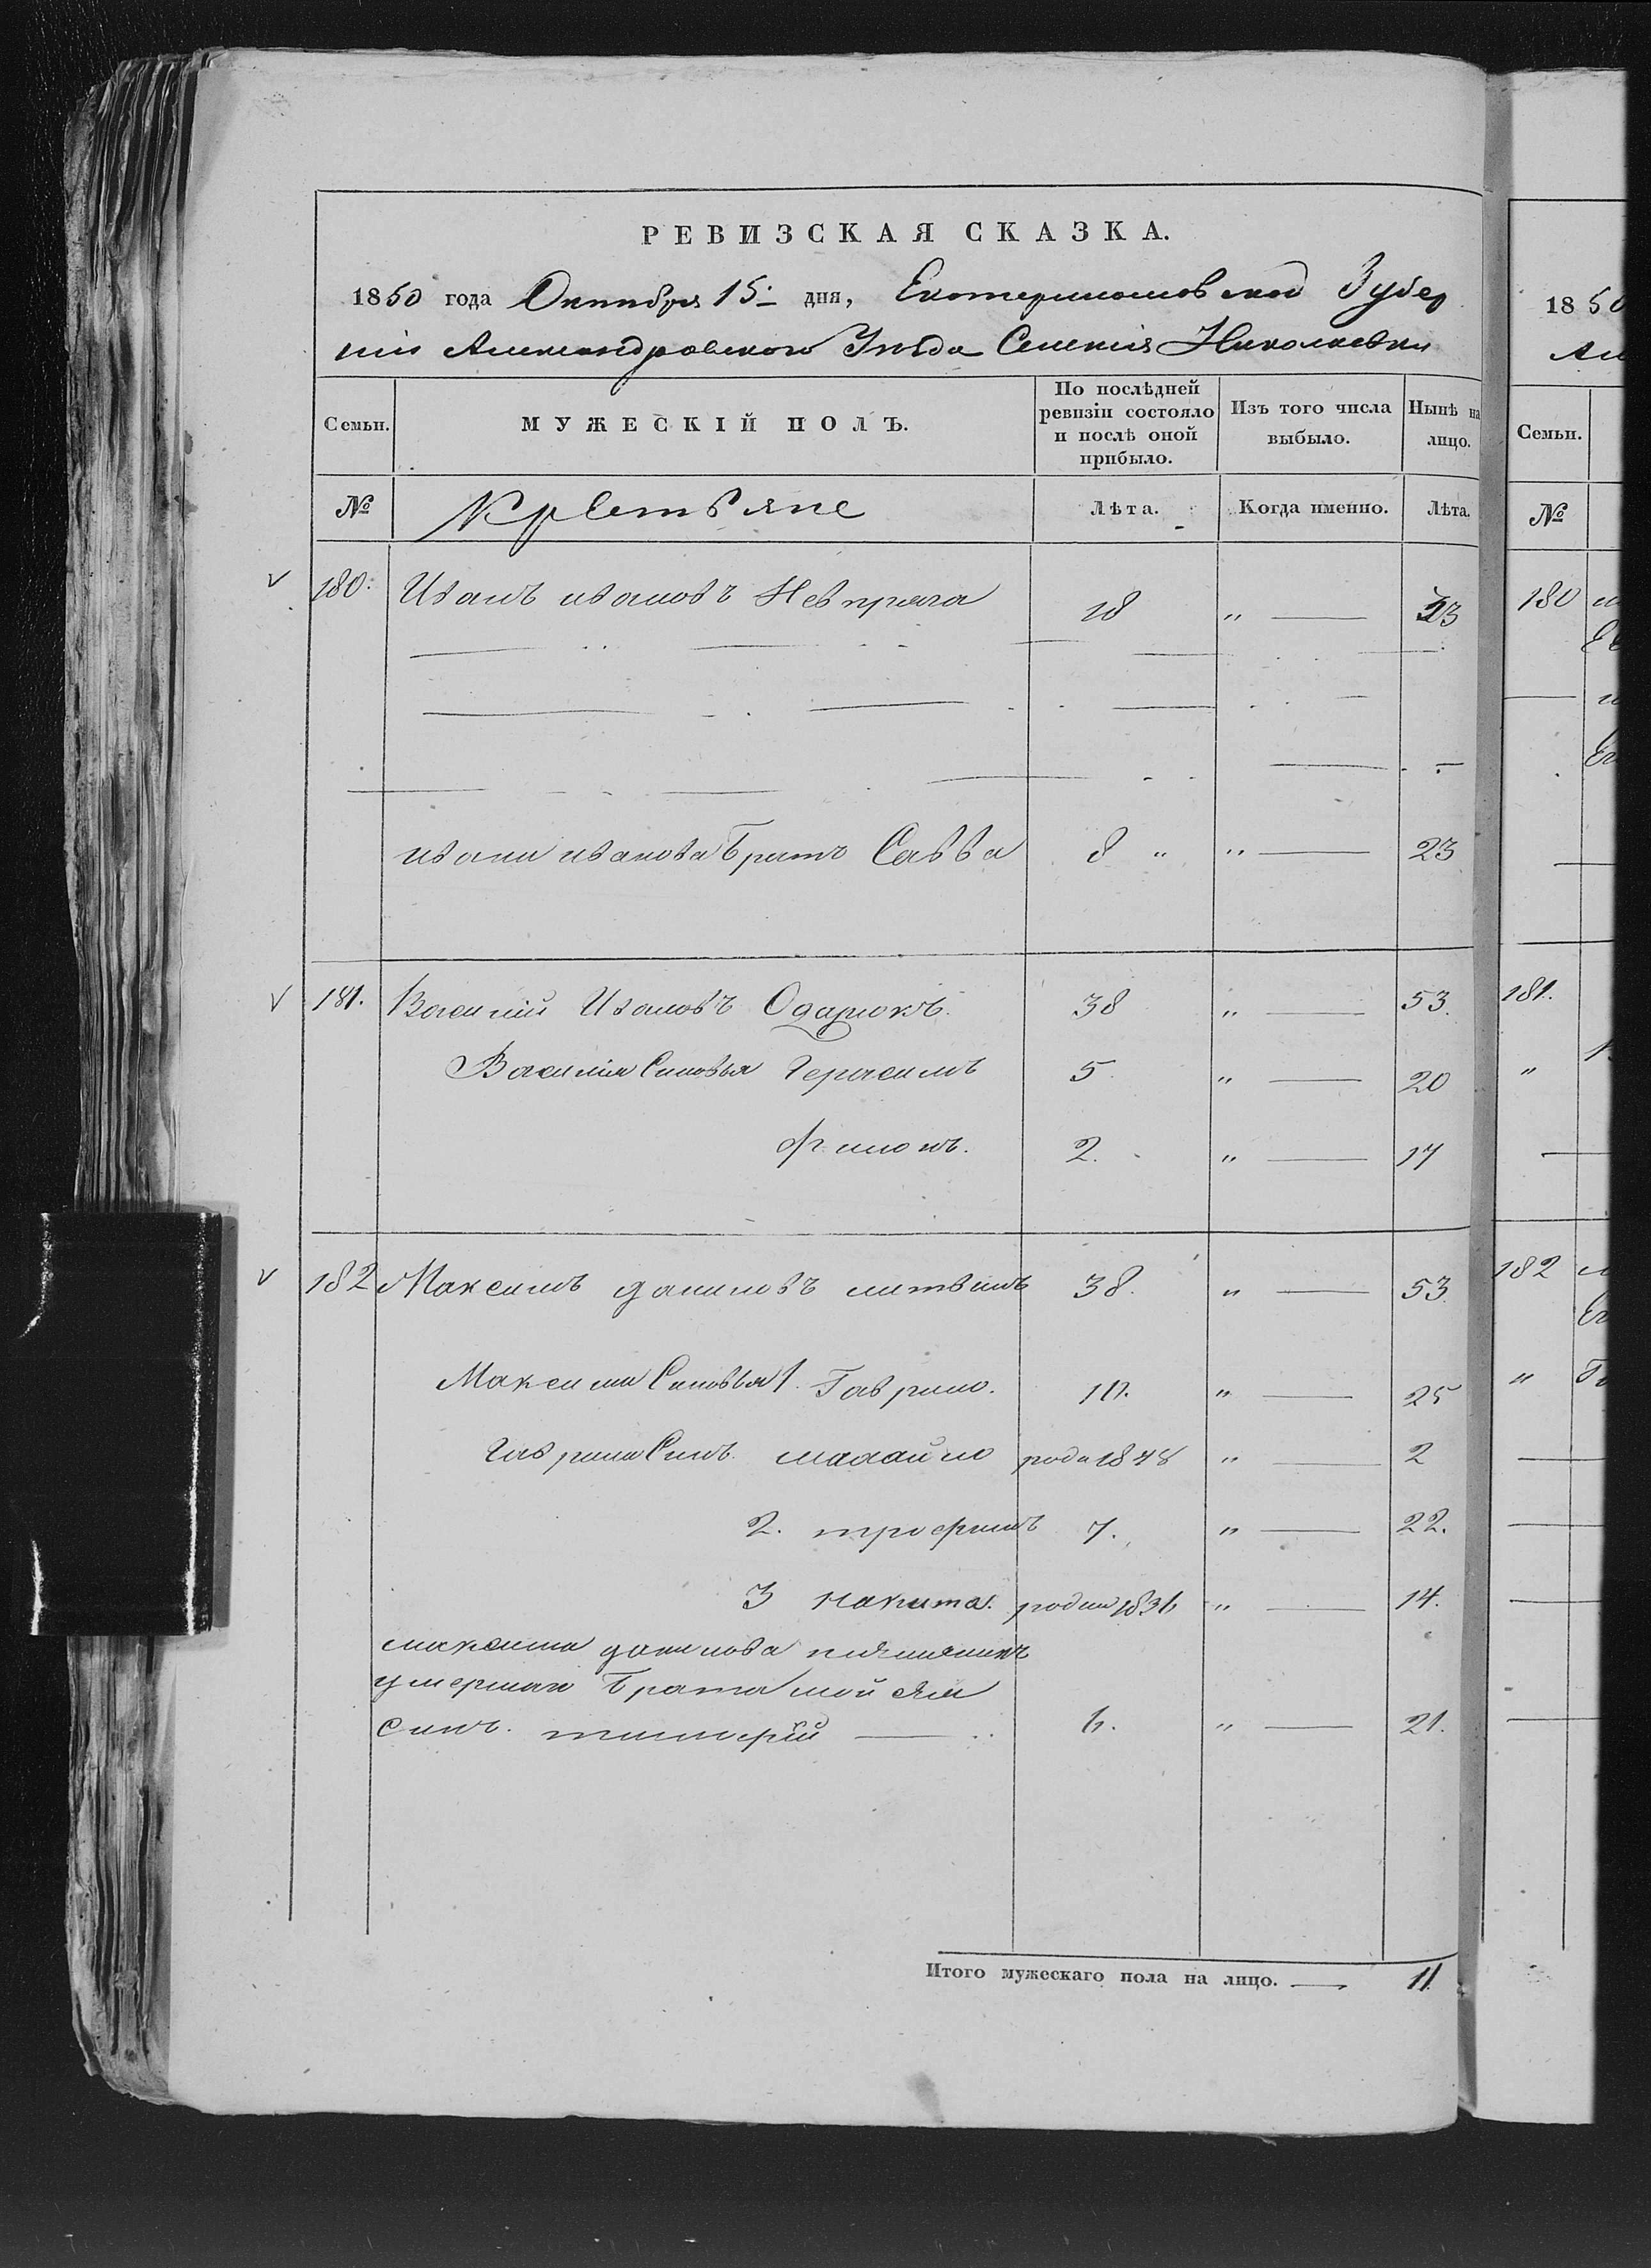 РЕВИЗСКАЯ СКАЗКА.
1850 года Октября 15 дня, Екатеринославской Губер
ніи Александровского Уѣзда Селенія Николаевки
Семьи. МУЖЕСКІЙ ПОЛЪ. По послѣдней ревизіи состояло и послѣ оной прибыло. Изъ того числа выбыло. Нынѣ на лицо.
№ Крестьяне Лѣта. Когда именно. Лѣта.
180. Иванъ ивановъ Невпряга 18 „ — 33
ивана иванова братъ Савва 8 „ „ — 23
181. Василий Ивановъ Одарюкъ. 38 „ — 53.
Василия Синовья Герасимъ 5 „ — 20
2. „ — 17
182 Максимъ даниловъ литвинъ 38. „ — 53.
Максима Синовья 1. Гаврило. 10. „ — 25
Гаврила Синъ. михайло роди 1848 „ — 2
2. трофимъ 7. „ — 22.
3 никита. 1836 „ — 14.
максима данилова племянникъ
умершаго брата
синъ. тимофѣй — 6. „ — 21.
Итого мужескаго пола на лицо. — 11.
1850
Ал
Семьи.
№
180
181.
„
182
„